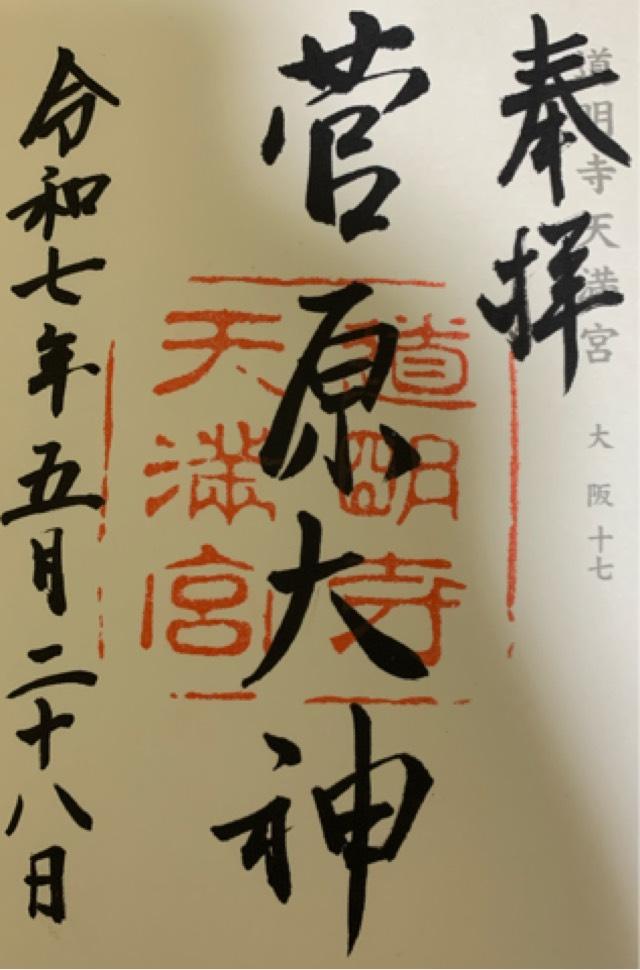 道明寺天満宮 大阪十七
奉拝
菅原大神
道明寺
天満宮
令和七年五月二十八日